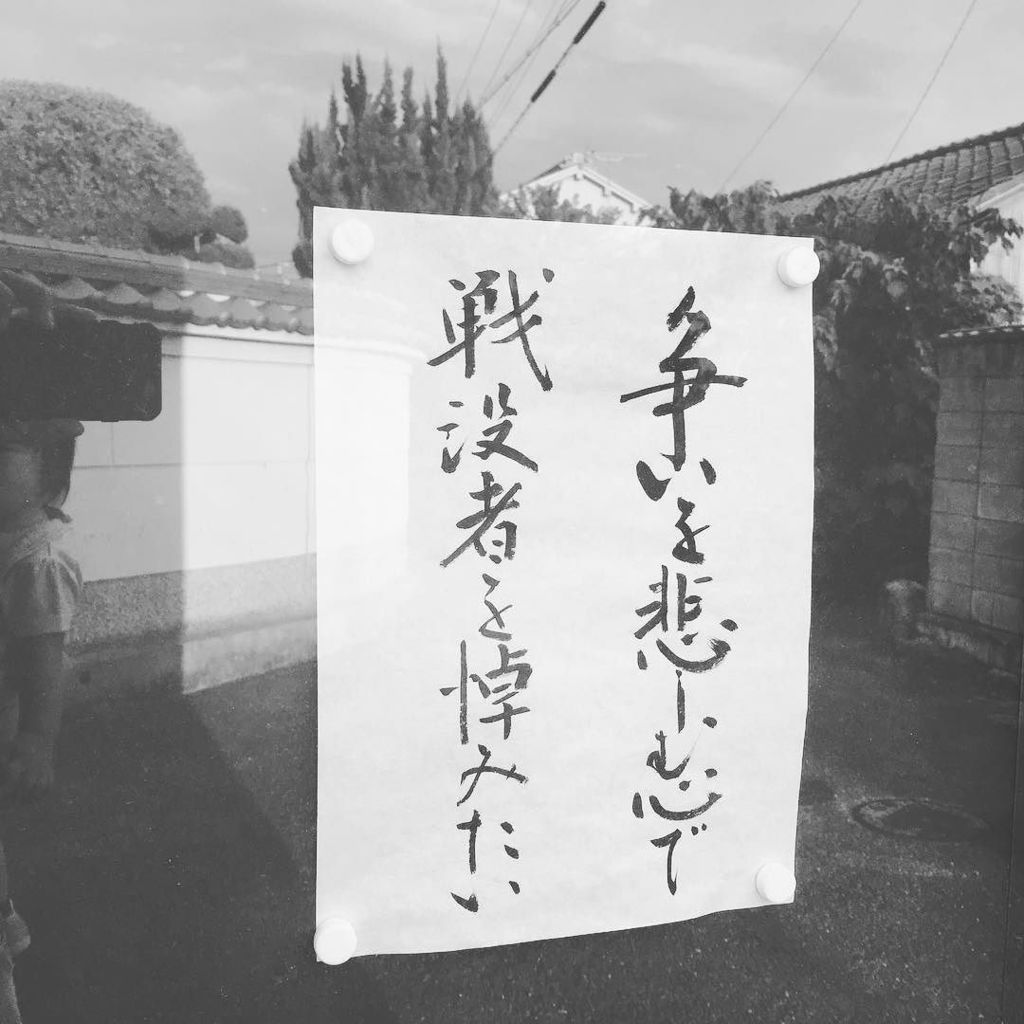 争いを悲しむ心で
戦没者を悼みたい